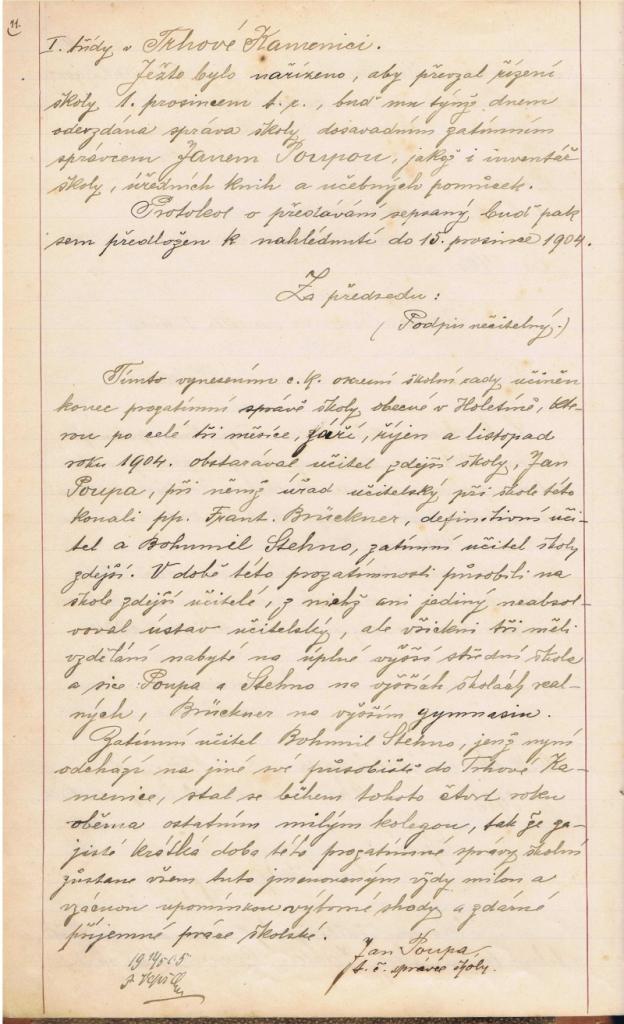 11.
I. třídy v Trhové Kamenici.
Ježto bylo nařízeno, aby převzal řízení
školy 1. prosincem t. r., buď mu týmž dnem
odevzdána správa školy dosavadním zatímním
správcem Janem Poupou, jakož i inventář
školy, úředních knih a učebných pomůcek.
Protokol o předávání sepsaný buď pak
sem předložen k nahlédnutí do 15. prosince 1904.
Za předsedu:
(Podpis nečitelný.)
Tímto vynesením c. k. okresní školní rady učiněn
konec prozatímní správě školy obecné v Holetíně, kte-
rou po celé tři měsíce, září, říjen a listopad
roku 1904. obstarával učitel zdejší školy, Jan
Poupa, při němž úřad učitelský při škole této
konali pp. Frant. Brückner, definitivní uči-
tel a Bohumil Stehno, zatímní učitel školy
zdejší. V době této prozatímnosti působili na
škole zdejší učitelé, z nichž ani jediný neabsol-
voval ústav učitelský, ale všickni tři měli
vzdělání nabyté na úplné vyšší střední škole
a sice: Poupa a Stehno na vyšších školách real-
ných, Brückner na vyšším gymnasiu.
Zatímní učitel Bohumil Stehno, jenž nyní
odchází na jiné své působiště do Trhové Ka-
menice, stal se během tohoto čtvrt roku
oběma ostatním milým kolegou, tak že za-
jisté krátká doba této prozatímné správy školní
zůstane všem tuto jmenovaným vždy milou a
vzácnou upomínkou výborné shody a zdárné
příjemné práce školské.
Jan Poupa,
t. č. správce školy.